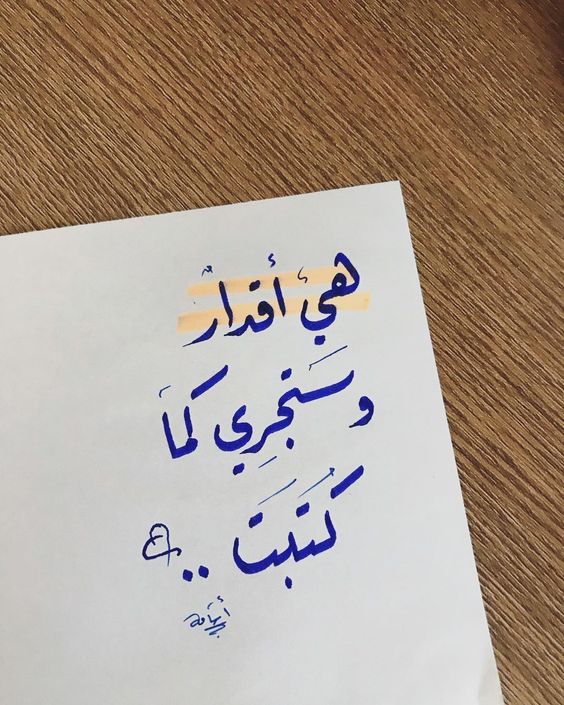 هيَ أقدارٌ
وسَتجرِي كمَا
كُتبَت ..